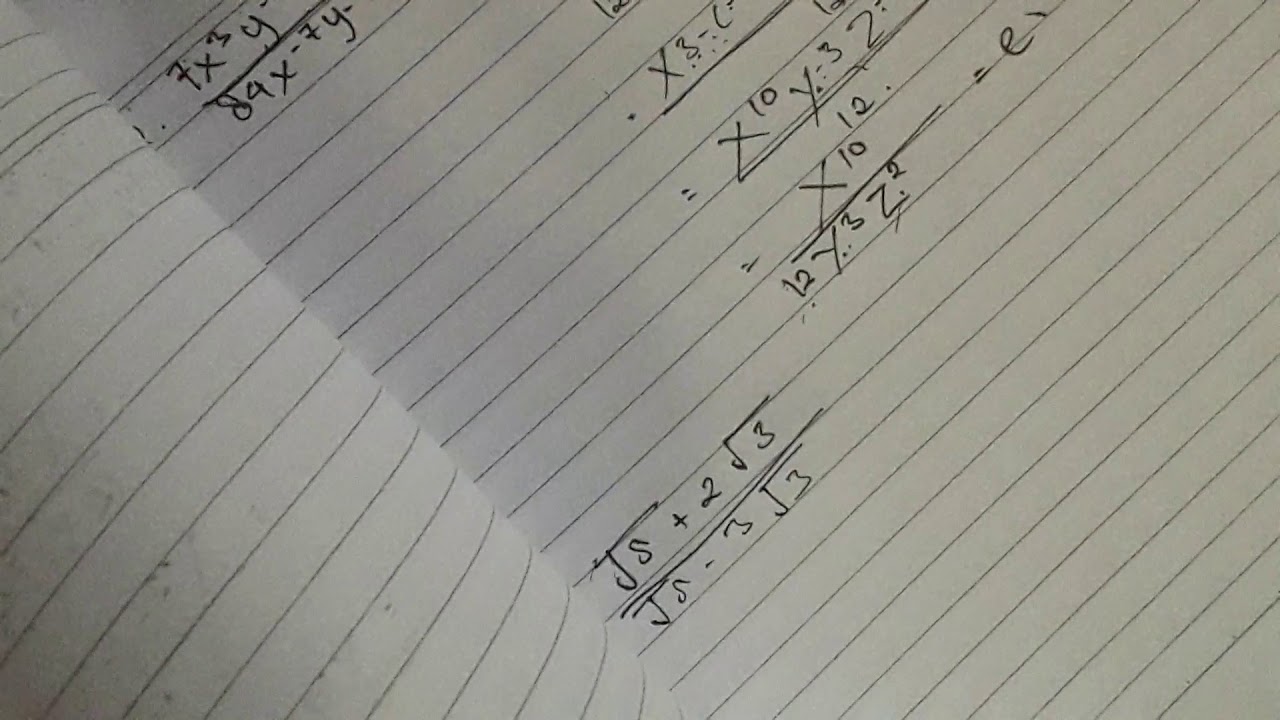 7x³y-
84x-⁷y-
x³-(-
= x¹⁰ y-³ z-
12
= x¹⁰ = e)
12y³z²
√5 + 2√3
√5 - 3√3